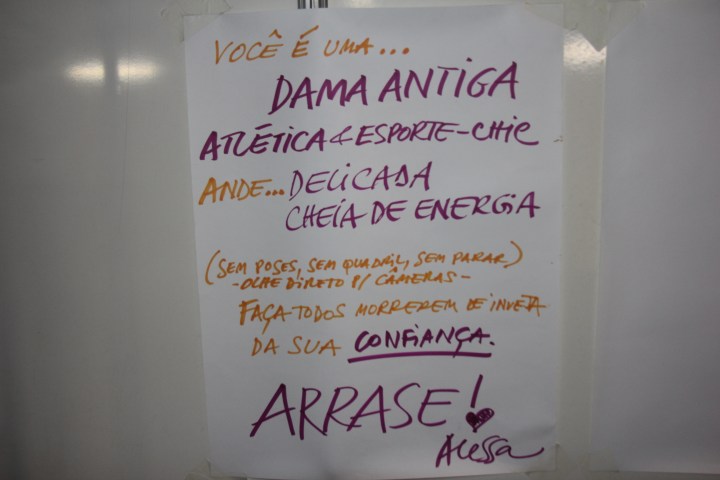 VOCÊ É UMA...
DAMA ANTIGA
ATLÉTICA & ESPORTE-CHIC
ANDE... DELICADA
CHEIA DE ENERGIA
(SEM POSES, SEM QUADRIL, SEM PARAR)
-OLHE DIRETO P/ CÂMERAS-
FAÇA TODOS MORREREM DE INVEJA
DA SUA CONFIANÇA.
ARRASE!
Alessa